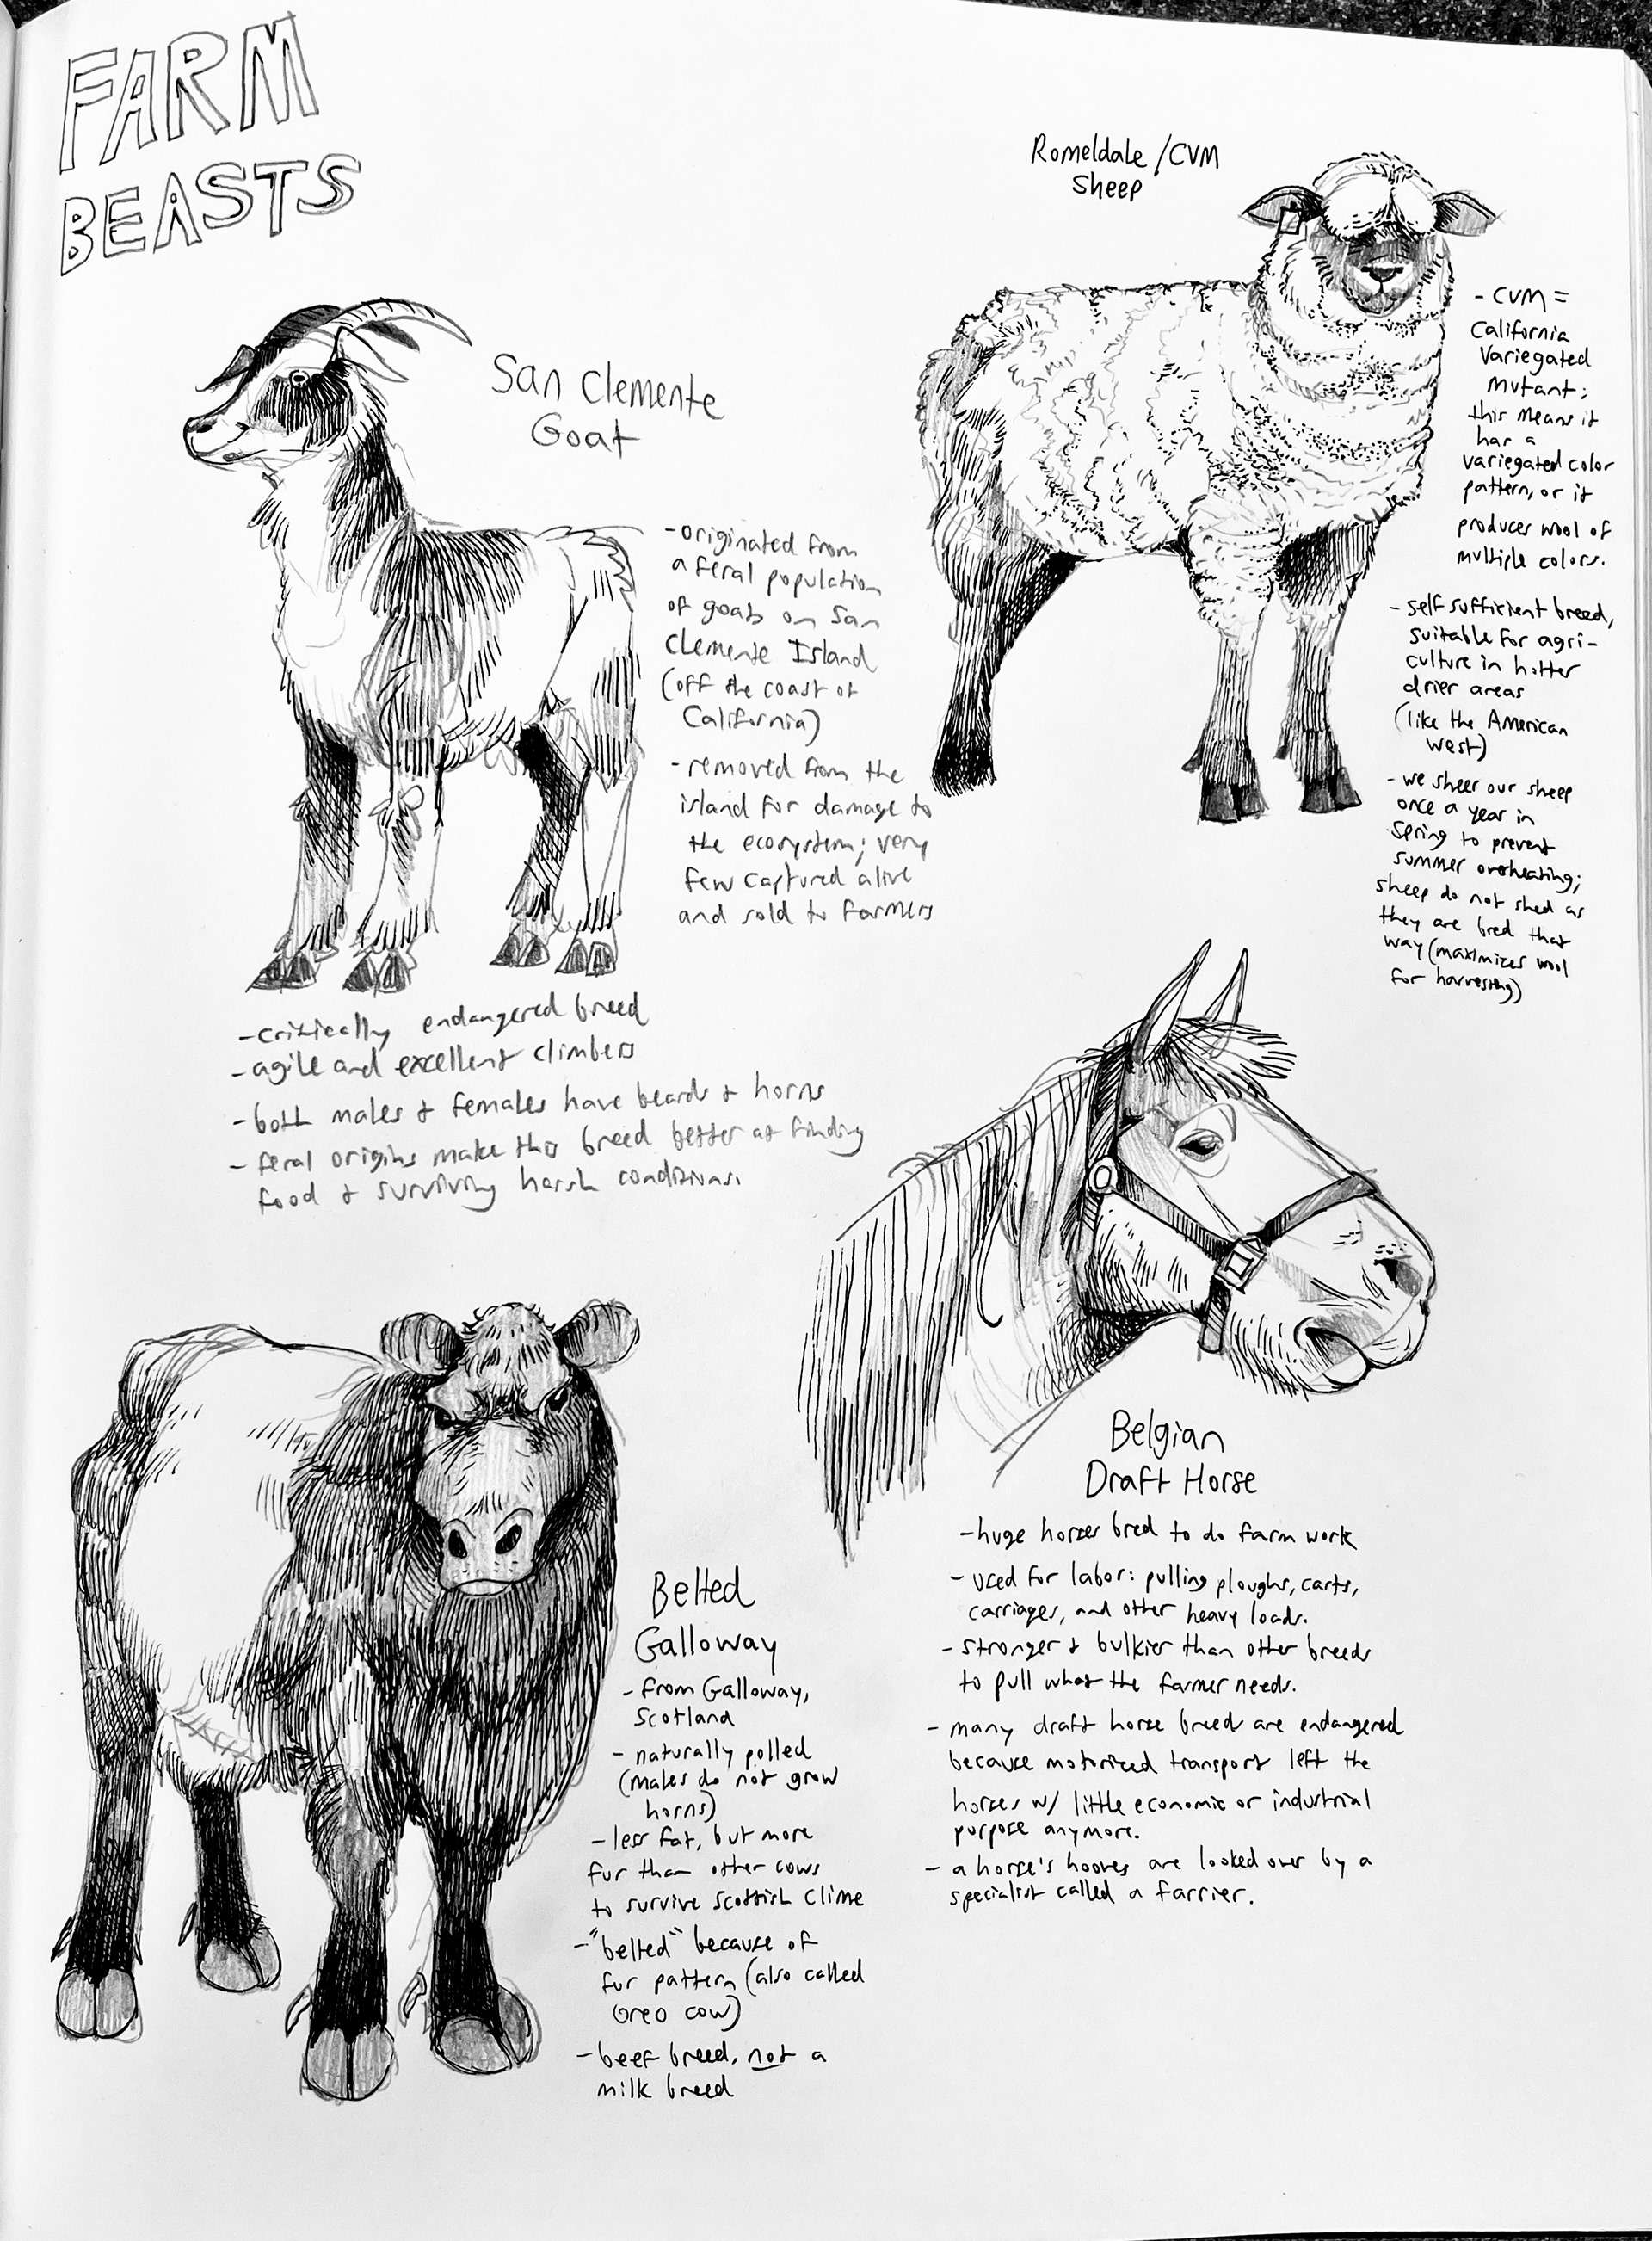 FARM
BEASTS
San Clemente
Goat
- originated from
a feral population
of goats on San
Clemente Island
(off the coast of
California)
- removed from the
island for damage to
the ecosystem; very
few captured alive
and sold to farmers
- critically endangered breed
- agile and excellent climbers
- both males & females have beards & horns
- feral origins make this breed better at finding
food & surviving harsh conditions.
Romeldale/CVM
Sheep
- CVM =
California
Variegated
Mutant;
this means it
has a
variegated color
pattern, or it
produces wool of
multiple colors.
- self sufficient breed,
suitable for agri-
culture in hotter
drier areas
(like the American
West)
- we sheer our sheep
once a year in
Spring to prevent
summer overheating;
sheep do not shed as
they are bred that
way (maximizes wool
for harvesting)
Belgian
Draft Horse
- huge horses bred to do farm work
- used for labor: pulling ploughs, carts,
carriages, and other heavy loads.
- stronger & bulkier than other breeds
to pull what the farmer needs.
- many draft horse breeds are endangered
because motorized transport left the
horses w/ little economic or industrial
purpose anymore.
- a horse's hooves are looked over by a
specialist called a farrier.
Belted
Galloway
- from Galloway,
Scotland
- naturally polled
(males do not grow
horns)
- less fat, but more
fur than other cows
to survive Scottish clime
- "belted" because of
fur pattern (also called
Oreo cow)
- beef breed, not a
milk breed